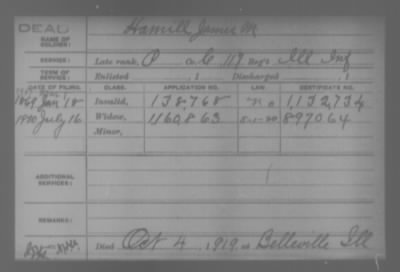 DEAD
NAME OF SOLDIER: Hamill James M
SERVICE: Late rank, P Co. C 119 Reg't Ill Inf
TERM OF SERVICE: Enlisted , 1 Discharged , 1
DATE OF FILING. CLASS. APPLICATION NO. LAW. CERTIFICATE NO.
1869 Jan 18 Invalid, 138,768 1,132,734
1920 July 16 Widow, 1160,863 897064
Minor,
ADDITIONAL SERVICES:
REMARKS:
Died Oct 4, 1919, at Belleville Ill